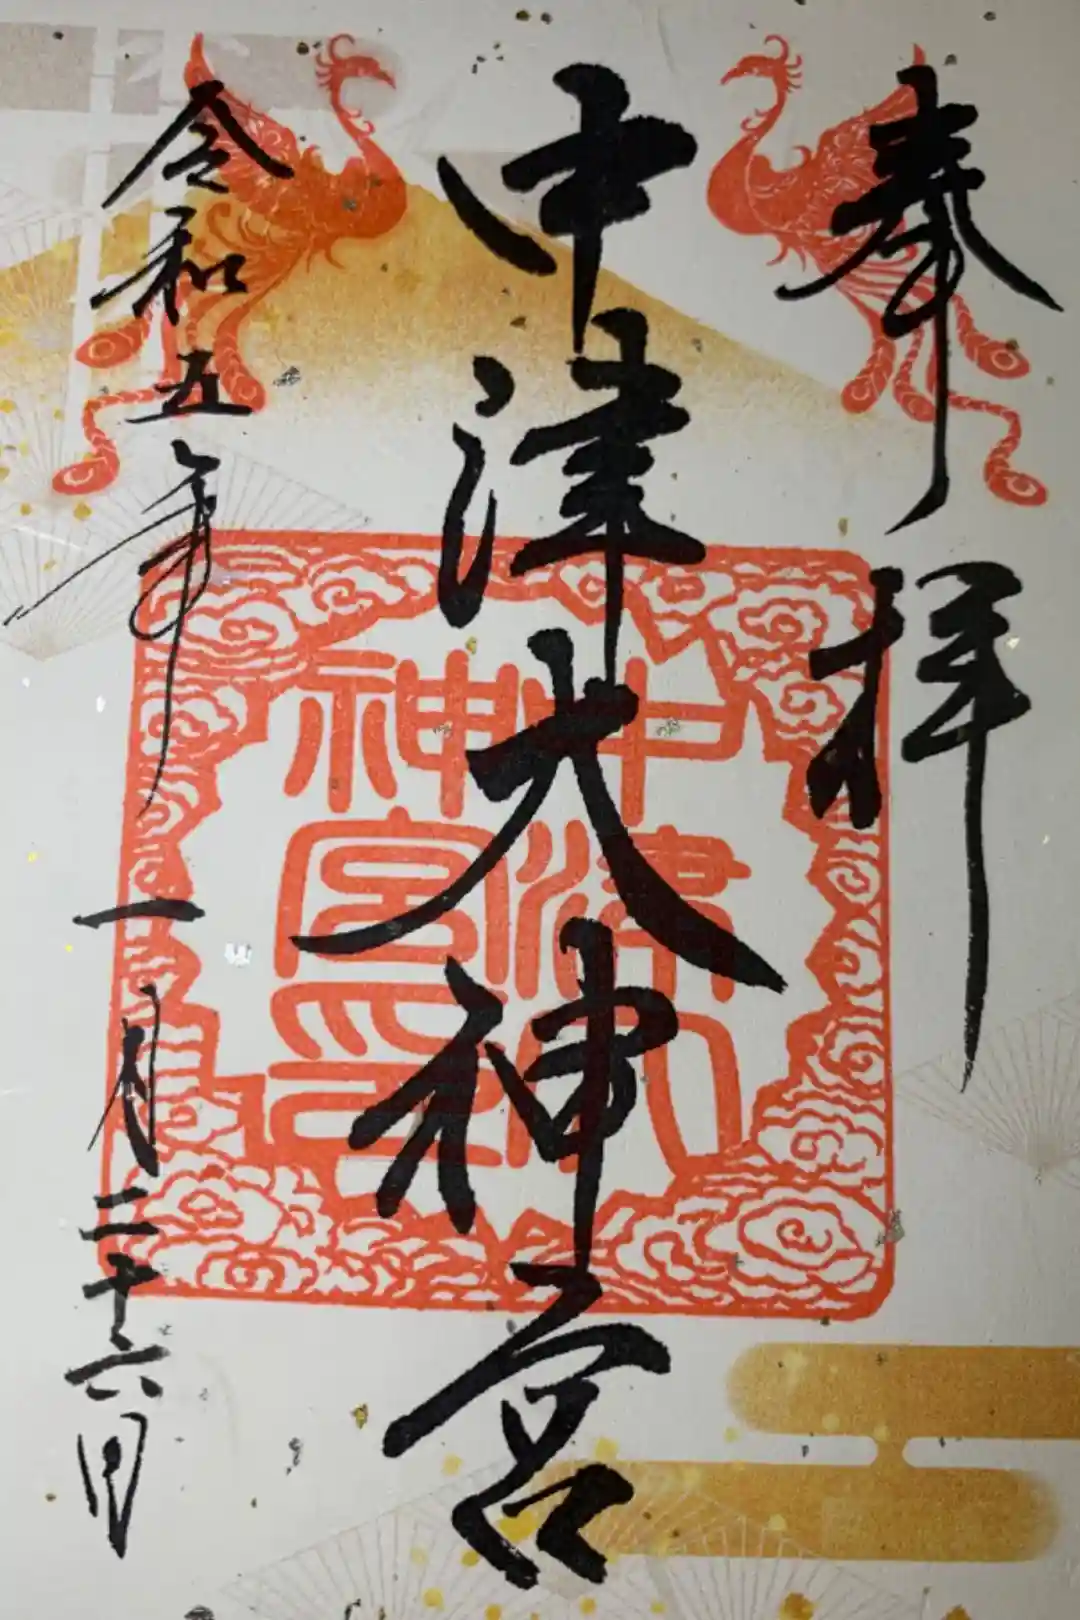 奉拝
中津大神宮
中津大
神宮印
令和五年一月二十六日